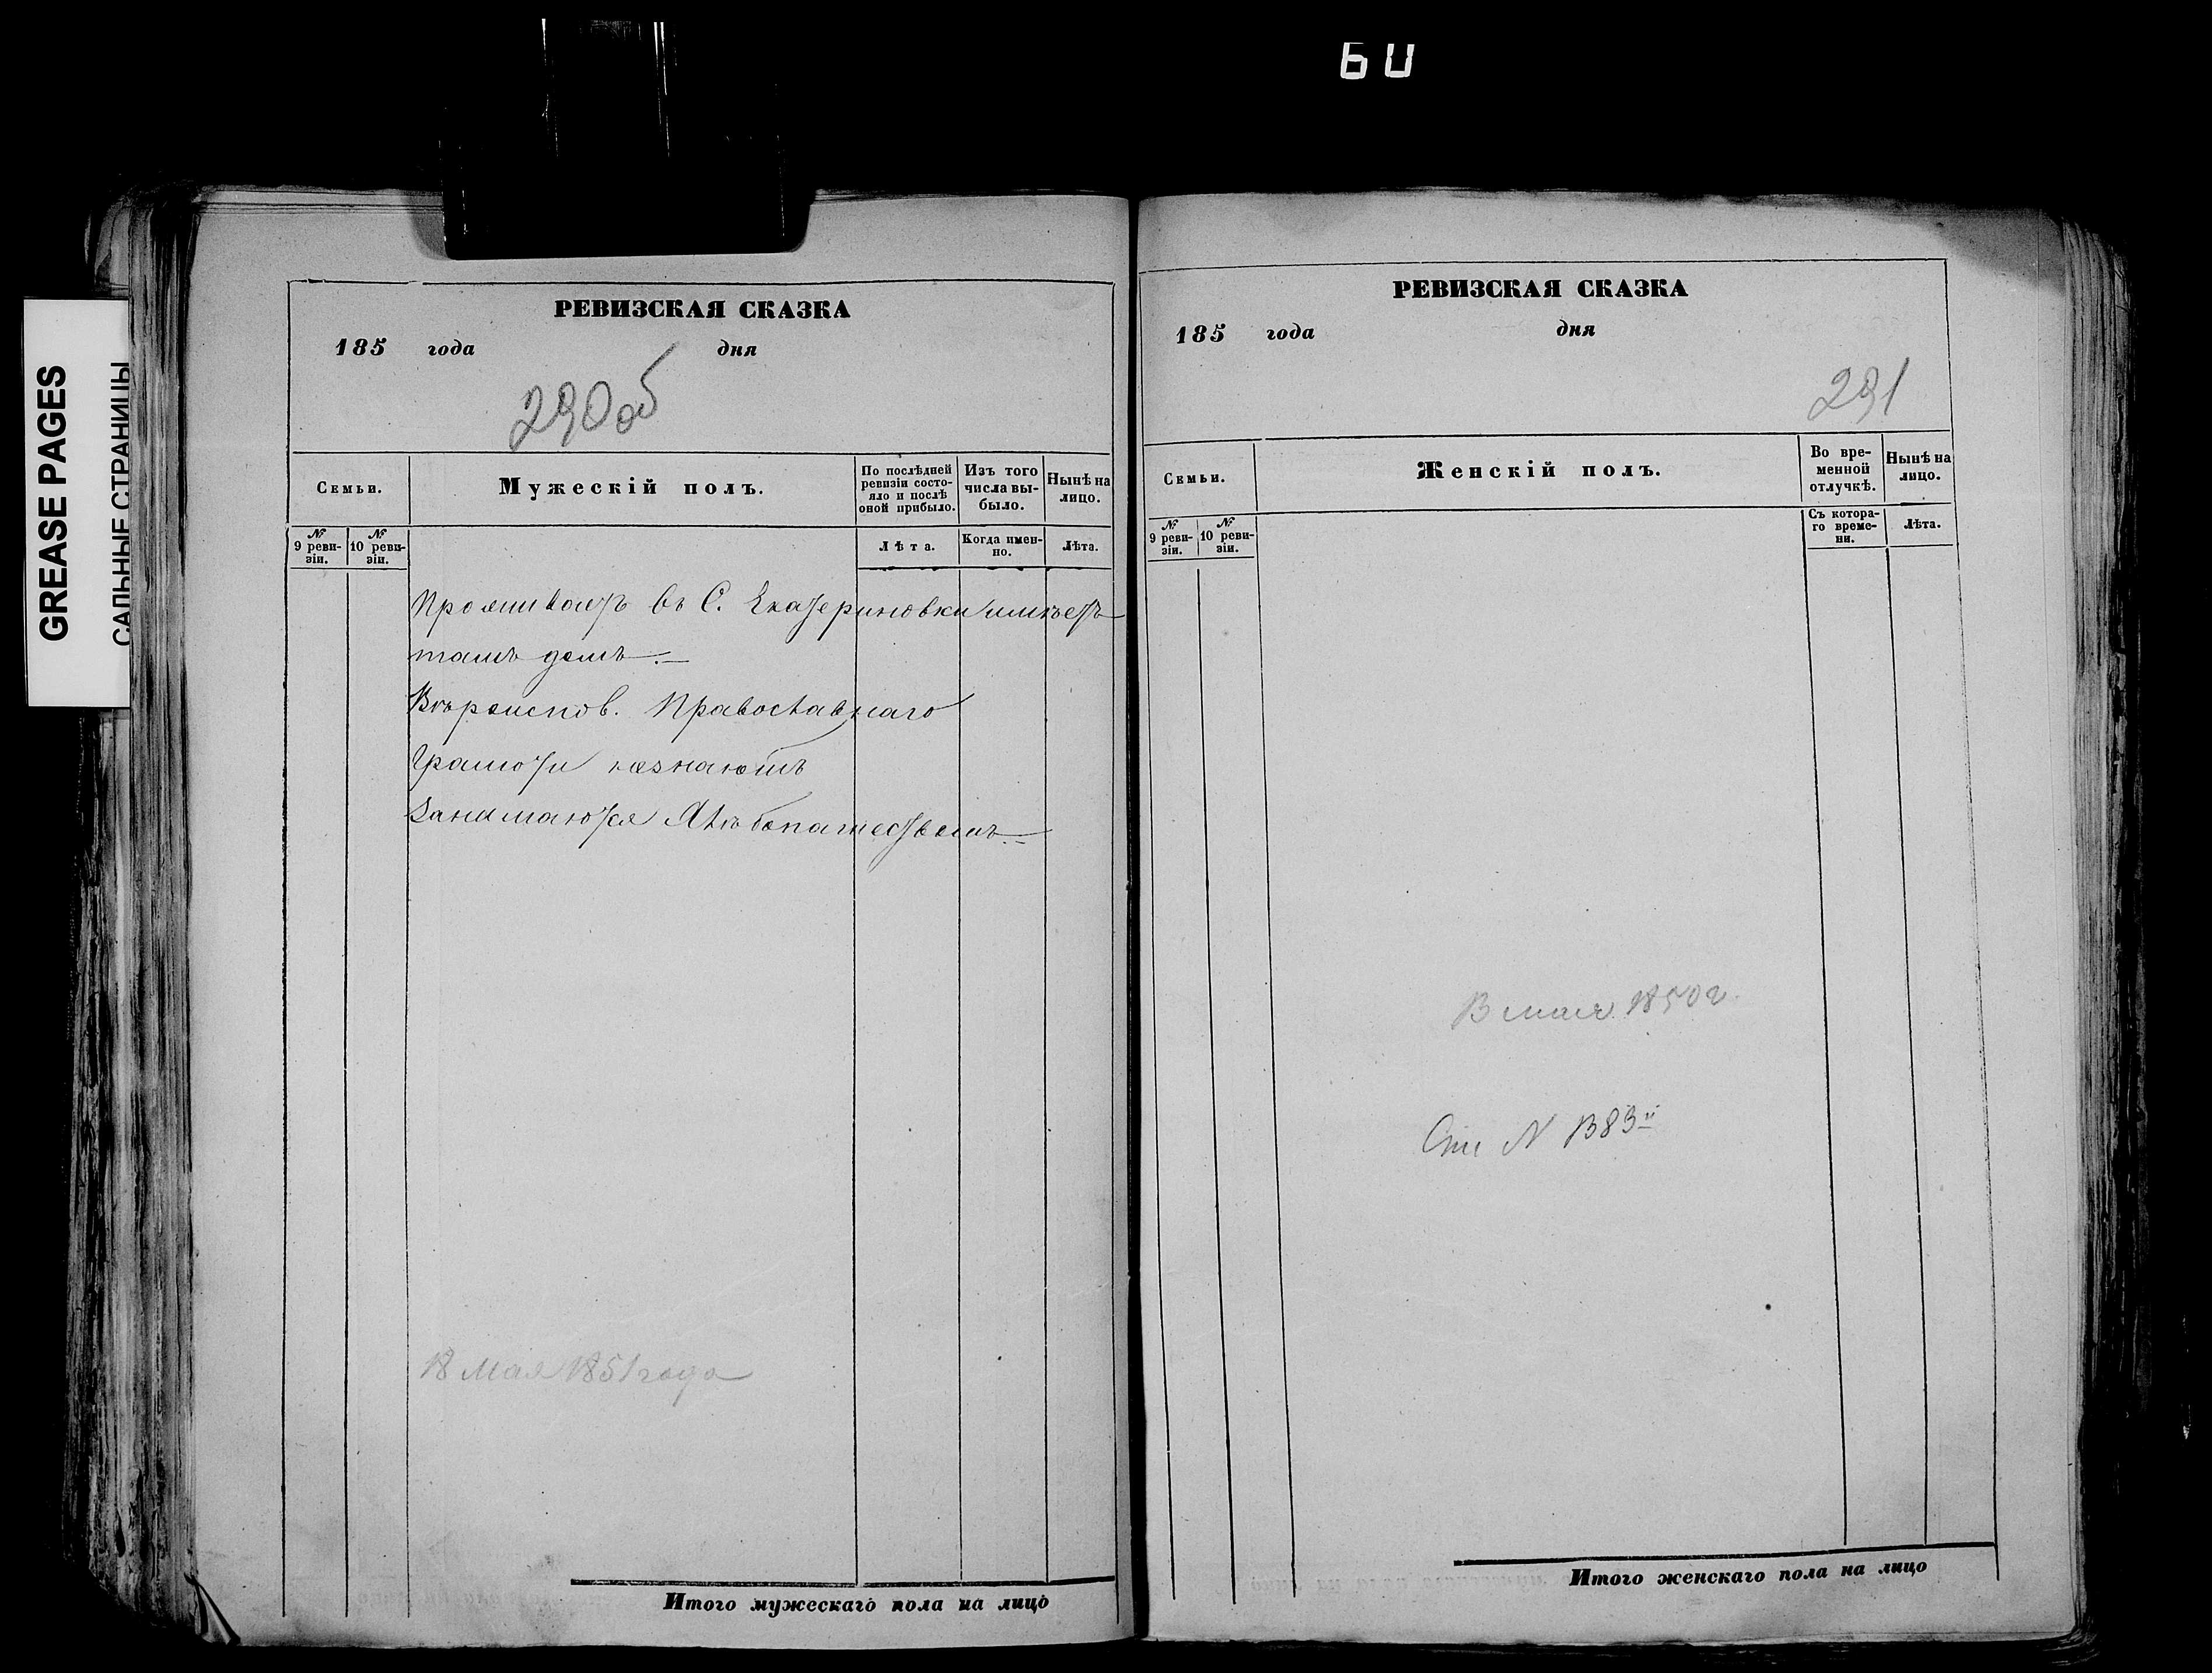 60
GREASE PAGES
САЛЬНЫЕ СТРАНИЦЫ
РЕВИЗСКАЯ СКАЗКА
185 года дня
290 об
Семьи.
Мужескій полъ.
По послѣдней ревизіи состояло и послѣ оной прибыло.
Изъ того числа выбыло.
Нынѣ на лицо.
№ 9 ревизіи.
№ 10 ревизіи.
Лѣта.
Когда именно.
Лѣта.
Проживаетъ въ С. Екатериновки имѣетъ
тамъ домъ.
Вѣроиспов. Православнаго
Грамоти незнаютъ
Занимаются Хлѣбопашествомъ
18 Мая 1851 года
Итого мужескаго пола на лицо
РЕВИЗСКАЯ СКАЗКА
185 года дня
291
Семьи.
Женскій полъ.
Во временной отлучкѣ.
Нынѣ на лицо.
№ 9 ревизіи.
№ 10 ревизіи.
Съ котораго времени.
Лѣта.
В мая 1850 г.
N 1383
Итого женскаго пола на лицо